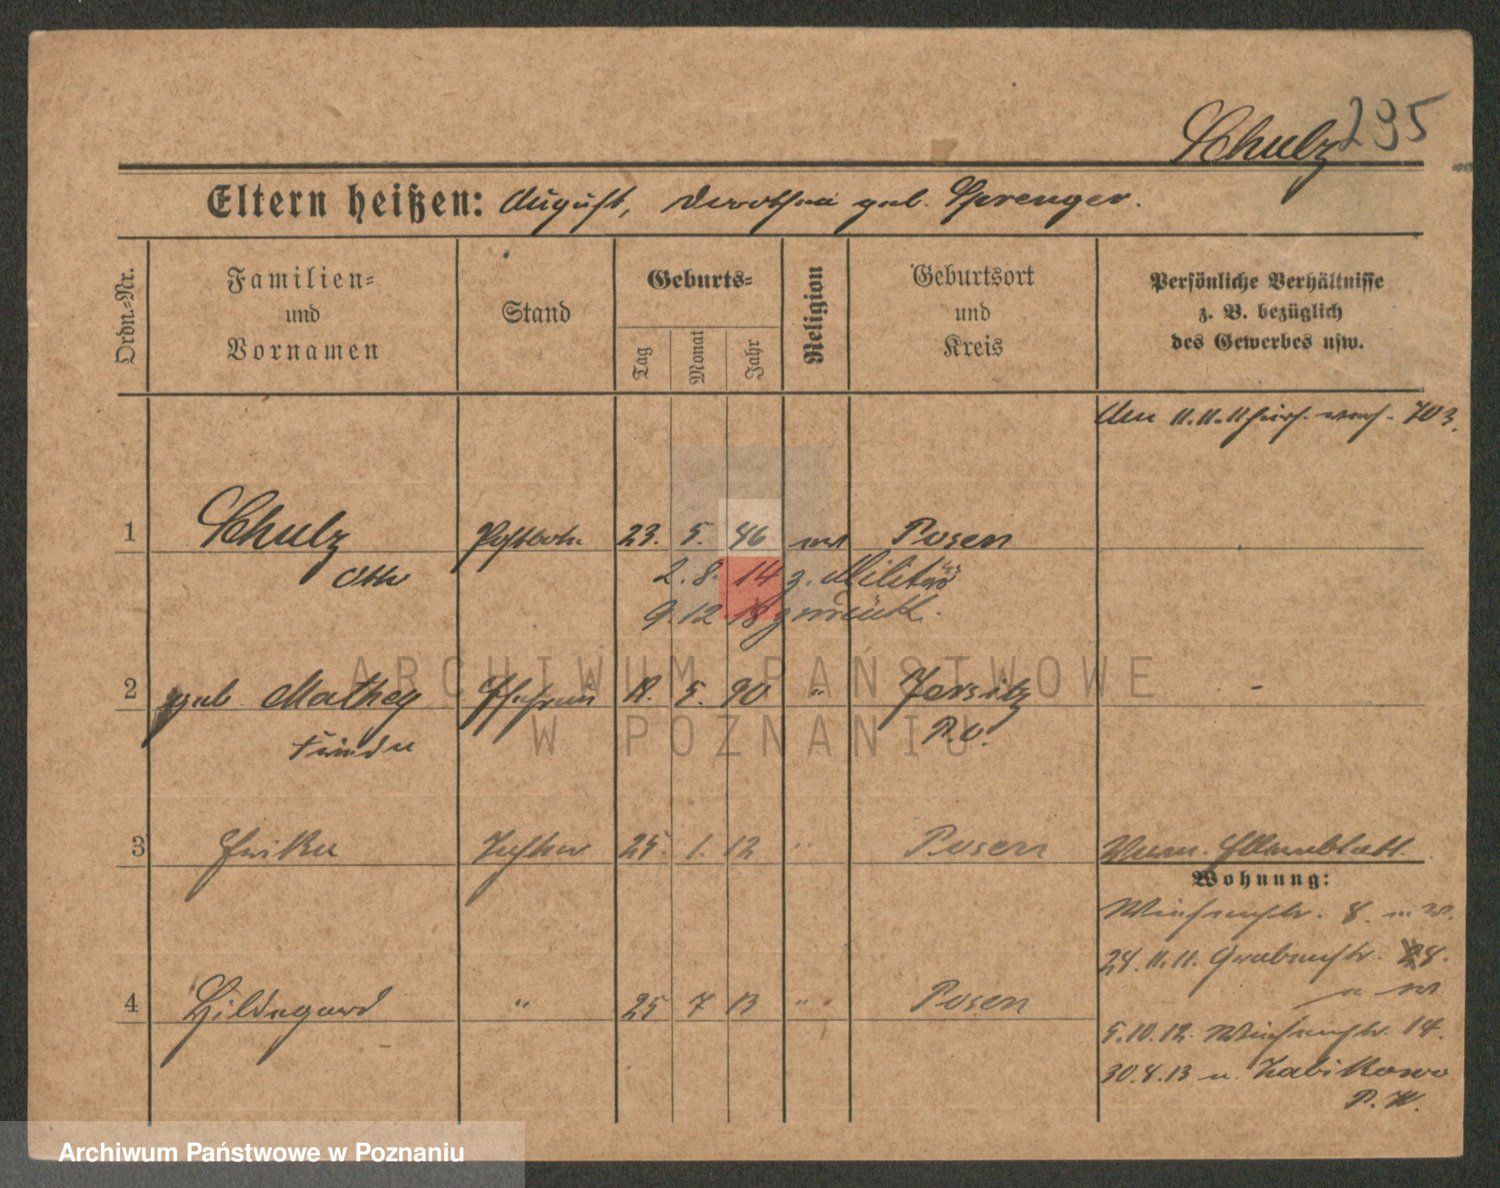 Schulz 295
Eltern heißen: August, Dorothea geb. Sprenger.
Ordn.-Nr.
Familien-
und
Vornamen
Stand
Geburts-
Tag
Monat
Jahr
Religion
Geburtsort
und
Kreis
Persönliche Verhältnisse
z. B. bezüglich
des Gewerbes usw.
Am 11.11.11 703.
1 Schulz Postbote 23. 5. 86 ev Posen
Otto 2. 8. 14 z. Militär
9. 12. 18 zurück.
2 geb Mathey Ehefrau 5. 90 " Jersitz
P. O.
3 Erika Tochter 25. 1. 12 " Posen
Wohnung:
8
24.11.11. Grabenstr.
4 Hildegard " 25 7 13 " Posen
5.10.12. 14.
30.8.13 n. Zabikowo
P. W.
ARCHIWUM PAŃSTWOWE
W POZNANIU
Archiwum Państwowe w Poznaniu